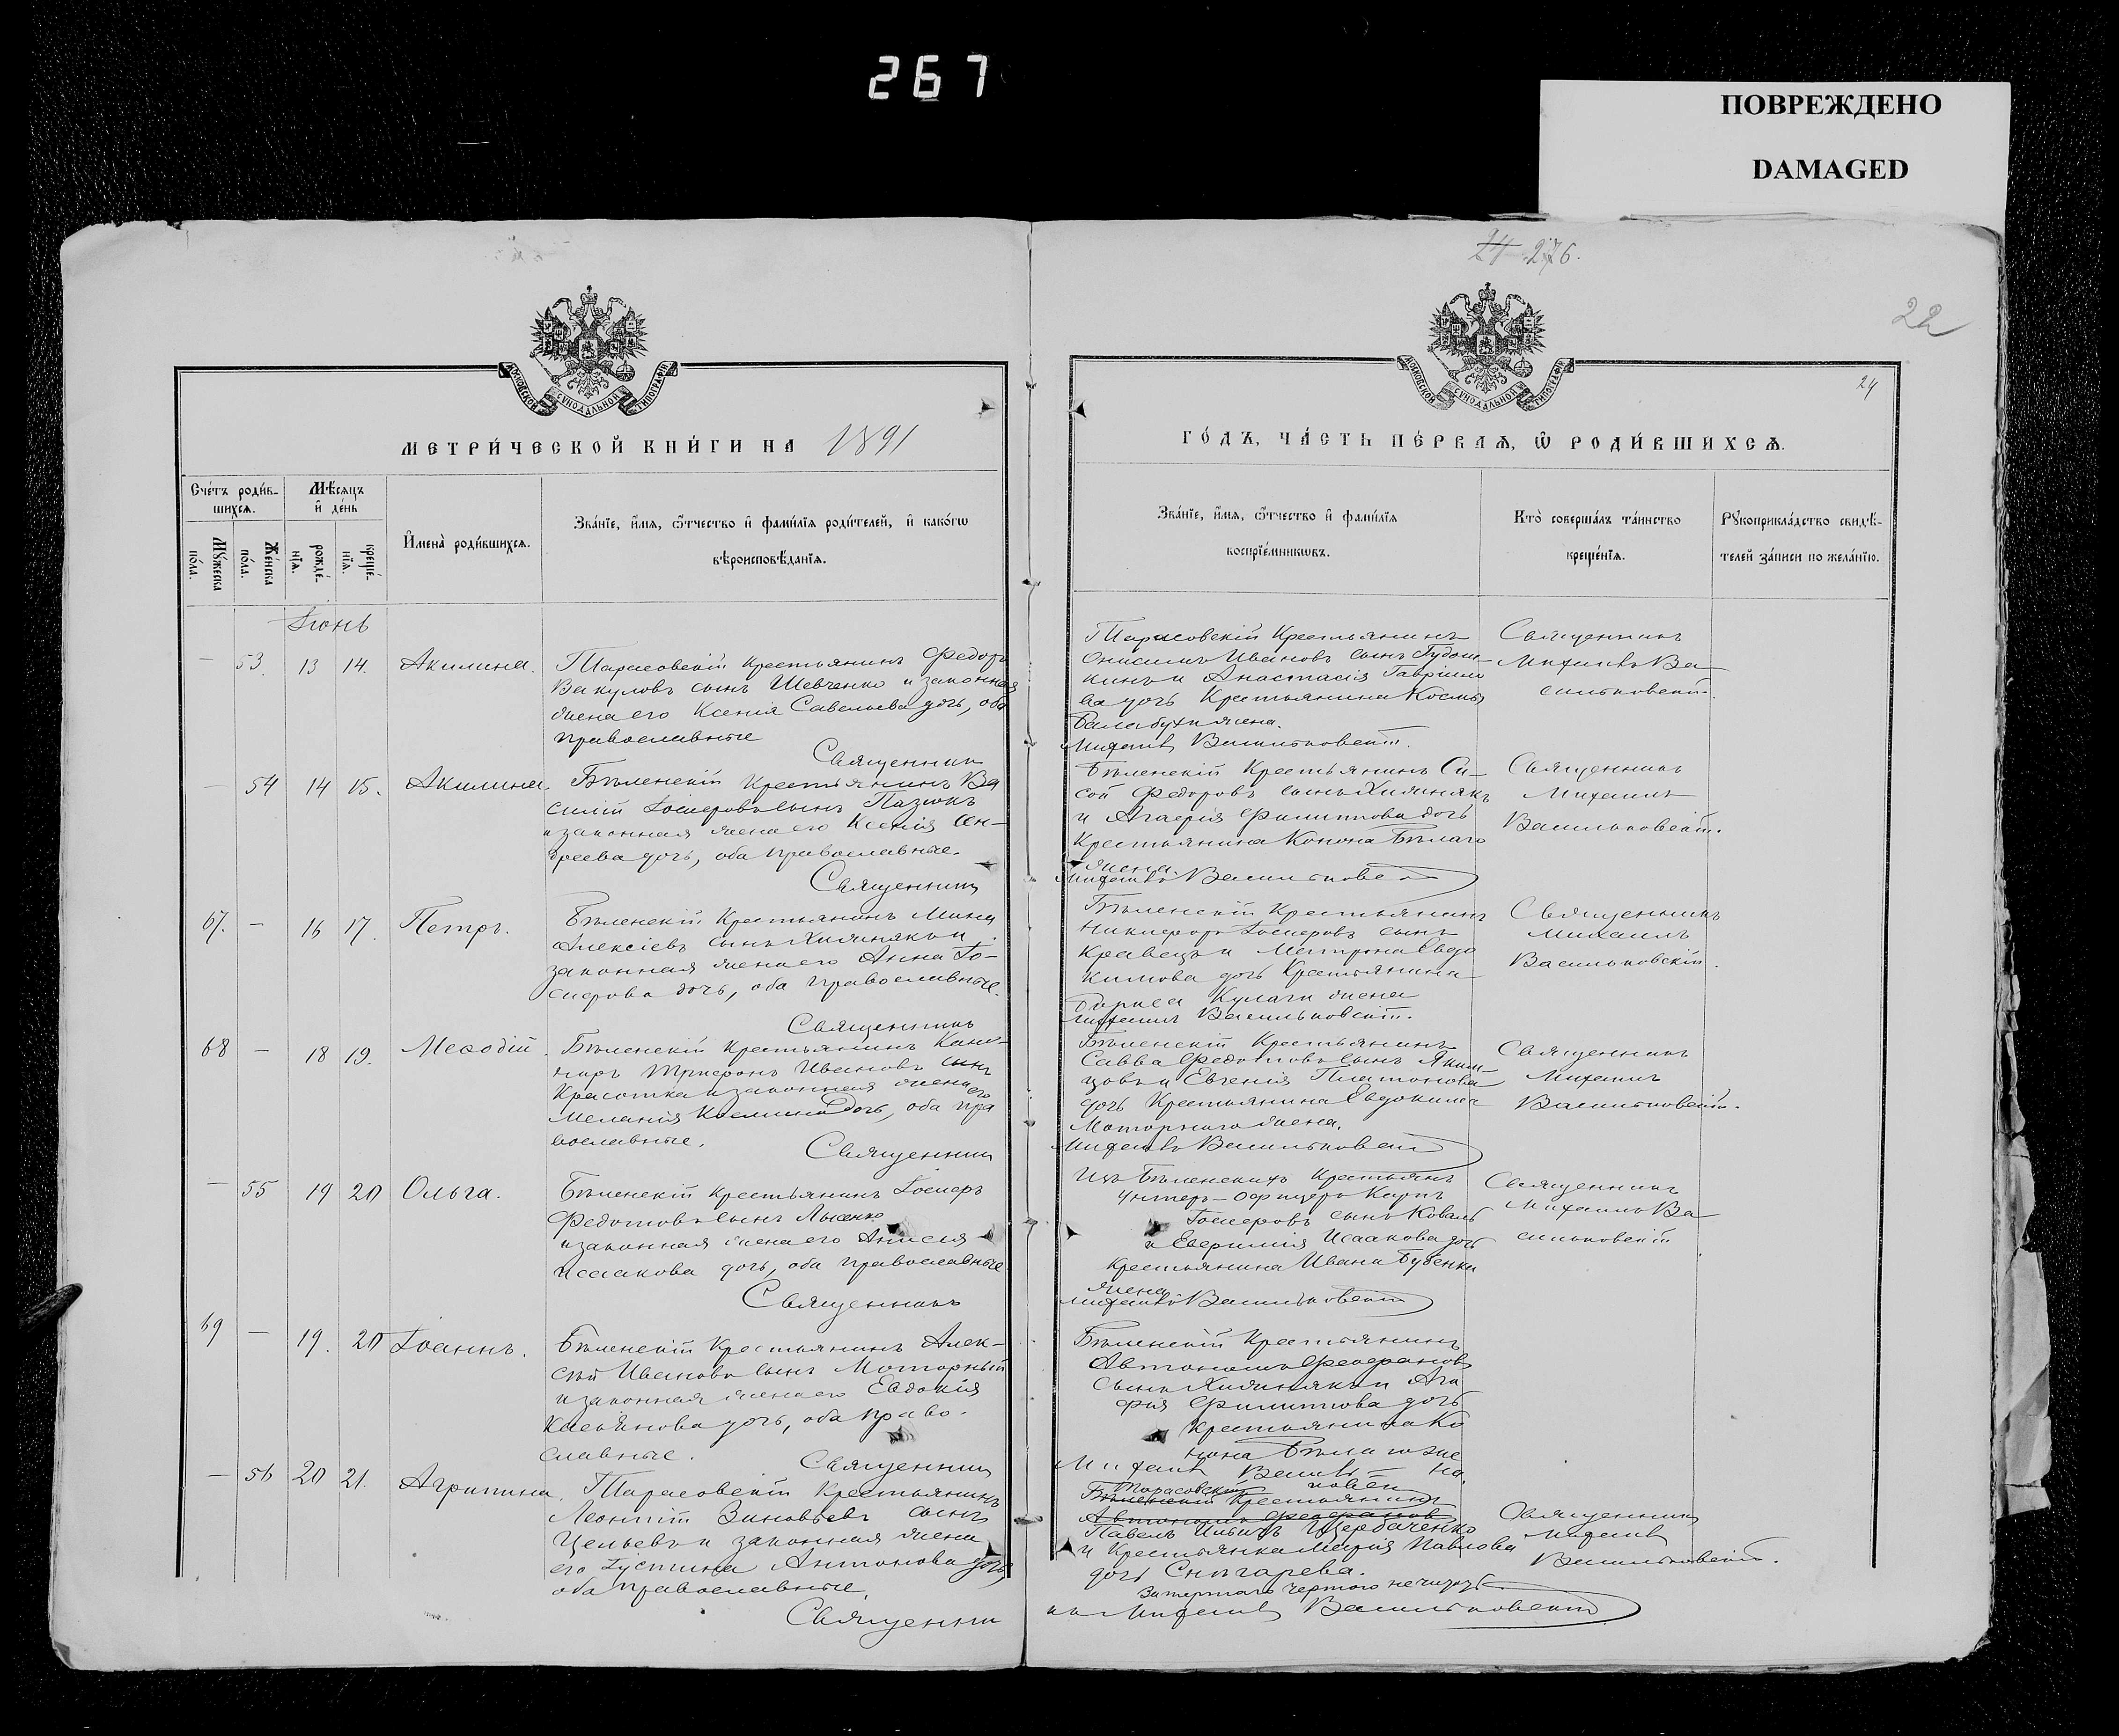 267
ПОВРЕЖДЕНО
DAMAGED
24 276.
22
24
МОСКОВСКОЙ СѴНОДАЛЬНОЙ ТИПОГРАФІИ
МОСКОВСКОЙ СѴНОДАЛЬНОЙ ТИПОГРАФІИ
МЕТРИ́ЧЕСКОЙ КНИ́ГИ НА 1891
ГО́ДЪ, ЧА́СТЬ ПЕ́РВАѦ, Ѿ РОДИ́ВШИХСѦ.
Сче́тъ роди́в-
шихсѧ.
Мѣ́сѧцъ
и҆ де́нь
Мꙋ́жеска
по́ла.
Же́нска
по́ла.
рожде́-
нїѧ.
креще́-
нїѧ.
И҆мена̀ роди́вшихсѧ.
Зва́нїе, и҆́мѧ, ѻ҆́тчество и҆ фами́лїѧ роди́телей, и҆ како́гѡ
вѣроисповѣ́данїѧ.
Зва́нїе, и҆́мѧ, ѻ҆́тчество и҆ фами́лїѧ
воспрїе́мникѡвъ.
Кто̀ соверша́лъ та́инство
креще́нїѧ.
Рꙋкоприкла́дство свидѣ́-
телей за́писи по жела́нїю.
Іюнь
— 53. 13 14. Акилина.
Тарасовскій крестьянинъ Федоръ
Вакуловъ сынъ Шевченко и законная
жена его Ксенія Савельева дочь, оба
православные
Священник
Тарасовскій Крестьянинъ
Онисимъ Ивановъ сынъ
и Анастасія Гаврило
ва дочь Крестьянина Космы
Балабухи жена.
Михаилъ Васильковскій.
Священникъ
Михаилъ Ва-
сильковскій.
— 54 14 15. Акилина.
Бѣленскій Крестьянинъ Ва
силій Іосифовъ сынъ Пазюкъ
и законная жена его Ксенія Ан-
дреева дочь, оба православные.
Священник
Бѣленскій Крестьянинъ Си-
сой Федоровъ сынъ Хижнякъ
и Агафія Филиппова дочь
Крестьянина Конона Бѣлаго
жена.
Михаилъ Васильковскій
Священникъ
Михаилъ
Васильковскій.
67. — 16 17. Петръ.
Бѣленскій Крестьянинъ Мина
Алексіевъ сынъ Хижнякъ и
законная жена его Анна Іо-
сифова дочь, оба православные.
Священникъ
Бѣленскій Крестьянинъ
Никифоръ Іосифовъ сынъ
Кравецъ и Матрона Евдо
кимова дочь Крестьянина
Бориса Кулаги жена
Михаилъ Васильковскій.
Священникъ
Михаилъ
Васильковскій.
68 — 18 19. Меѳодій.
Бѣленскій Крестьянинъ Кано-
ниръ Трифонъ Ивановъ сынъ
Красотка и законная жена его
Меланія Космина дочь, оба пра
вославные.
Священник
Бѣленскій Крестьянинъ
Савва Федотовъ сынъ Яким-
цовъ и Евгенія Платонова
дочь Крестьянина Евдокима
Моторнаго жена.
Михаилъ Васильковскій
Священникъ
Михаилъ
Васильковскій.
— 55 19 20 Ольга.
Бѣленскій Крестьянинъ Іосифъ
Федотовъ сынъ Лысенко
и законная жена его Анисія
Исаакова дочь, оба православные
Священникъ
Изъ Бѣленскихъ Крестьянъ
Унтеръ-Офицеръ Карпъ
Іосифовъ сынъ Коваль
и Евфимія Исаакова дочь
Крестьянина Ивана Бубенки
жена
Михаилъ Васильковскій
Священникъ
Михаилъ Ва
сильковскій
69 — 19. 20 Іоаннъ.
Бѣленскій Крестьянинъ Алек-
сѣй Ивановъ сынъ Моторный
и законная жена его Евдокія
Касьянова дочь, оба право-
славные.
Священник
Бѣленскій Крестьянинъ
Автономъ
сынъ Хижнякъ и Ага
фія Филиппова дочь
крестьянина Ко
нона Бѣлаго же
на.
Михаилъ Василь-
ковск
— 56 20 21. Агрипина.
Тарасовскій Крестьянинъ
Леонтій Зиновьевъ сынъ
Цельевъ и законная жена
его Іустина Антонова дочь,
оба православные.
Священник
Тарасовскій
Бѣленскій Крестьянинъ
Автономъ
Павелъ Ильинъ Щербаченко
и Крестьянка Марія Павлова
дочь Снѣгарева.
Михаилъ Васильковскій
Священникъ
Михаилъ
Васильковскій.